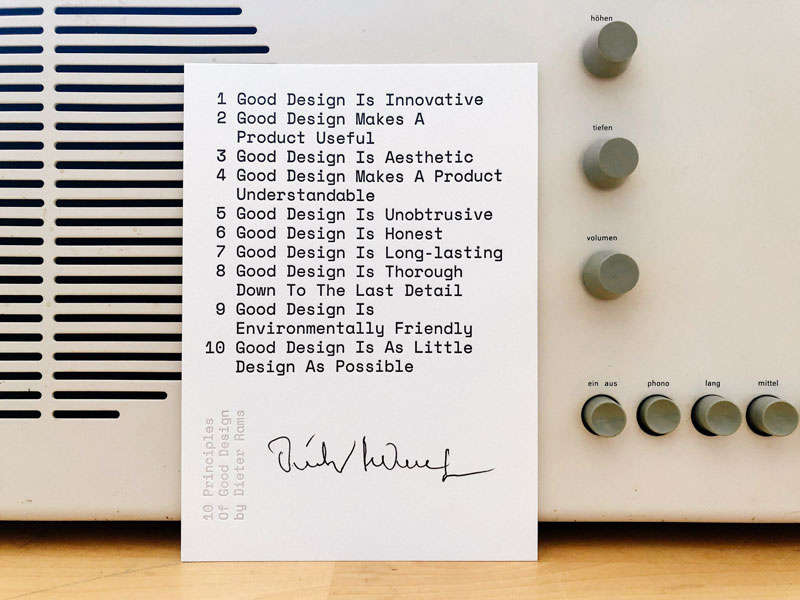 1 Good Design Is Innovative
2 Good Design Makes A
Product Useful
3 Good Design Is Aesthetic
4 Good Design Makes A Product
Understandable
5 Good Design Is Unobtrusive
6 Good Design Is Honest
7 Good Design Is Long-lasting
8 Good Design Is Thorough
Down To The Last Detail
9 Good Design Is
Environmentally Friendly
10 Good Design Is As Little
Design As Possible
10 Principles
Of Good Design
by Dieter Rams
höhen
tiefen
volumen
ein aus
phono
lang
mittel